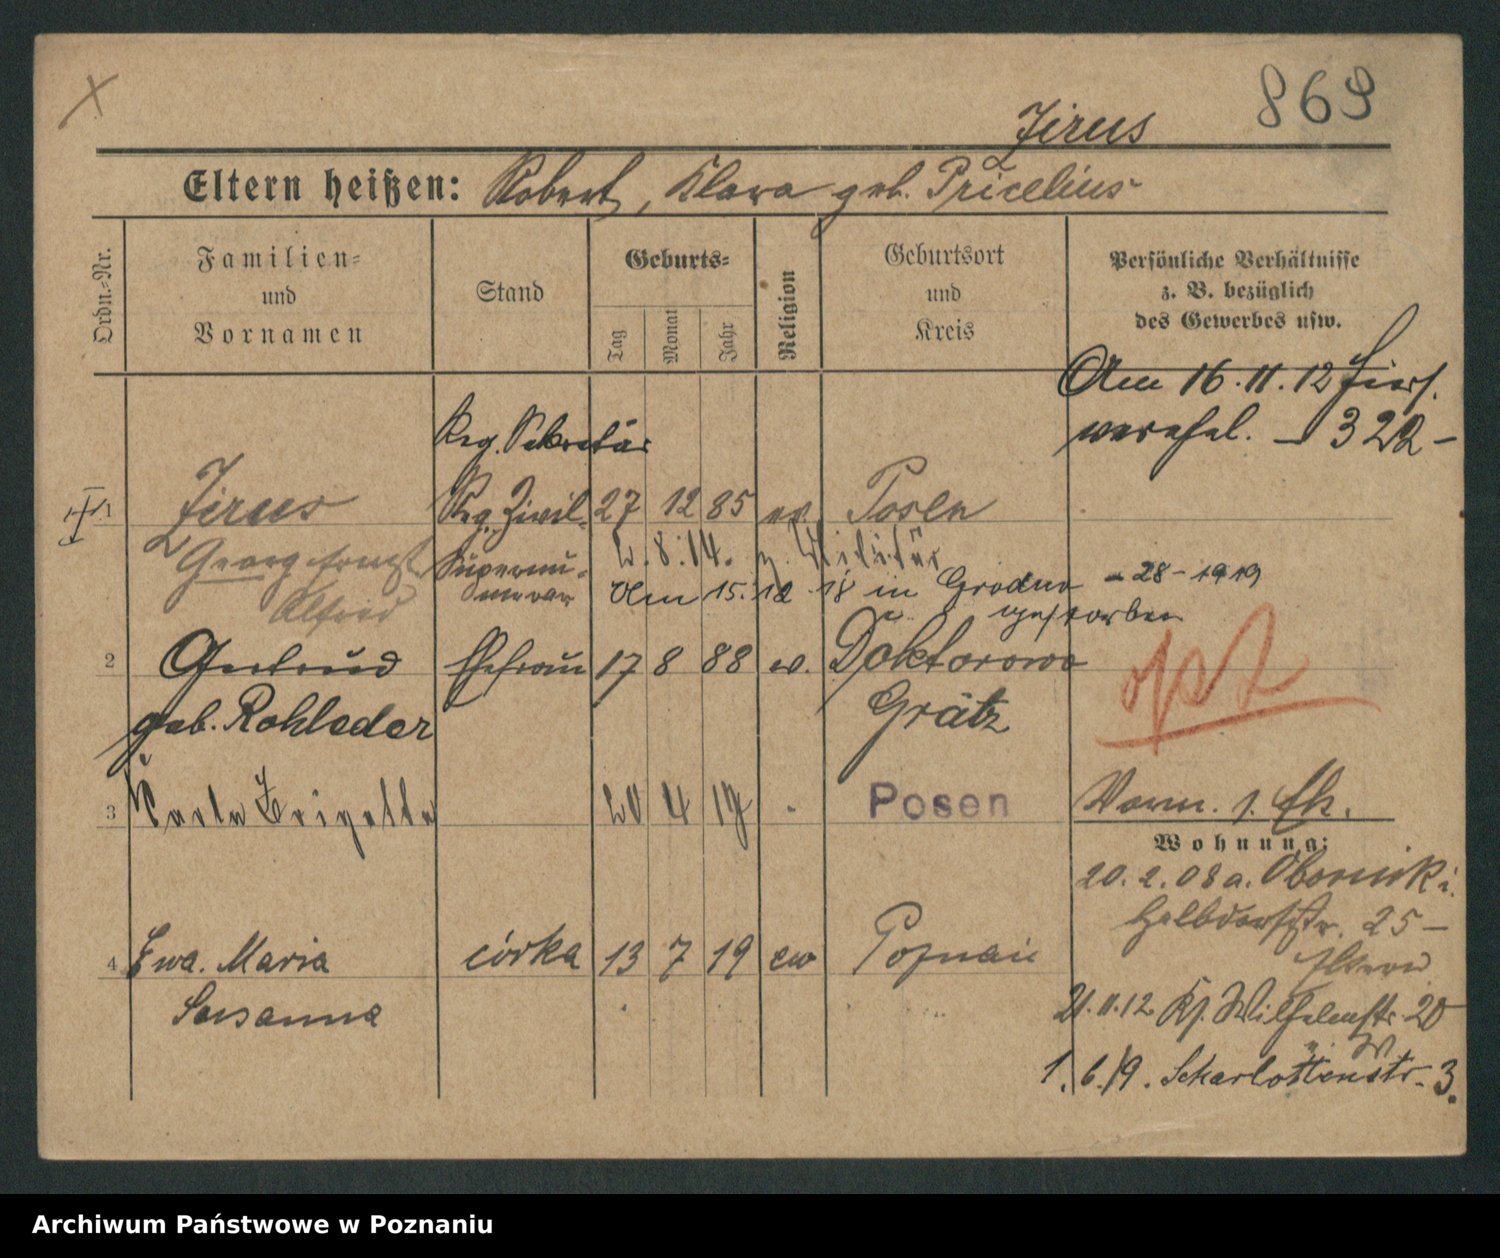 869
Zirus
Eltern heißen: Robert, Klara geb. Pricelius
Ordn.-Nr.
Familien-
und
Vornamen
Stand
Geburts-
Tag
Monat
Jahr
Religion
Geburtsort
und
Kreis
Persönliche Verhältnisse
z. B. bezüglich
des Gewerbes usw.
Am 16.11.12 hier
verehel. – 322 –
Reg. Sekretär
1 Zirus Reg. Zivil- 27 12 85 ev. Posen
Georg Ernst Supernu-
Alfred merar
2.8.14. z. Militär
Am 15.12.18 in Grodno
gestorben
28 – 1919
2 Gertrud Ehefrau 17 8 88 ev. Doktorowo
geb. Rohleder Grätz
opt
3 Brigette 20 4 17 Posen
Vorm. 1. Eh.
Wohnung:
20.2.08 a. Obornik
25 –
Eltern
4 Ewa. Maria córka 13 7 19 ew Poznań
Susanna
21.11.12 Kg. Wilhelmstr. 20
1.6.19. Scharlottenstr. 3.
Archiwum Państwowe w Poznaniu